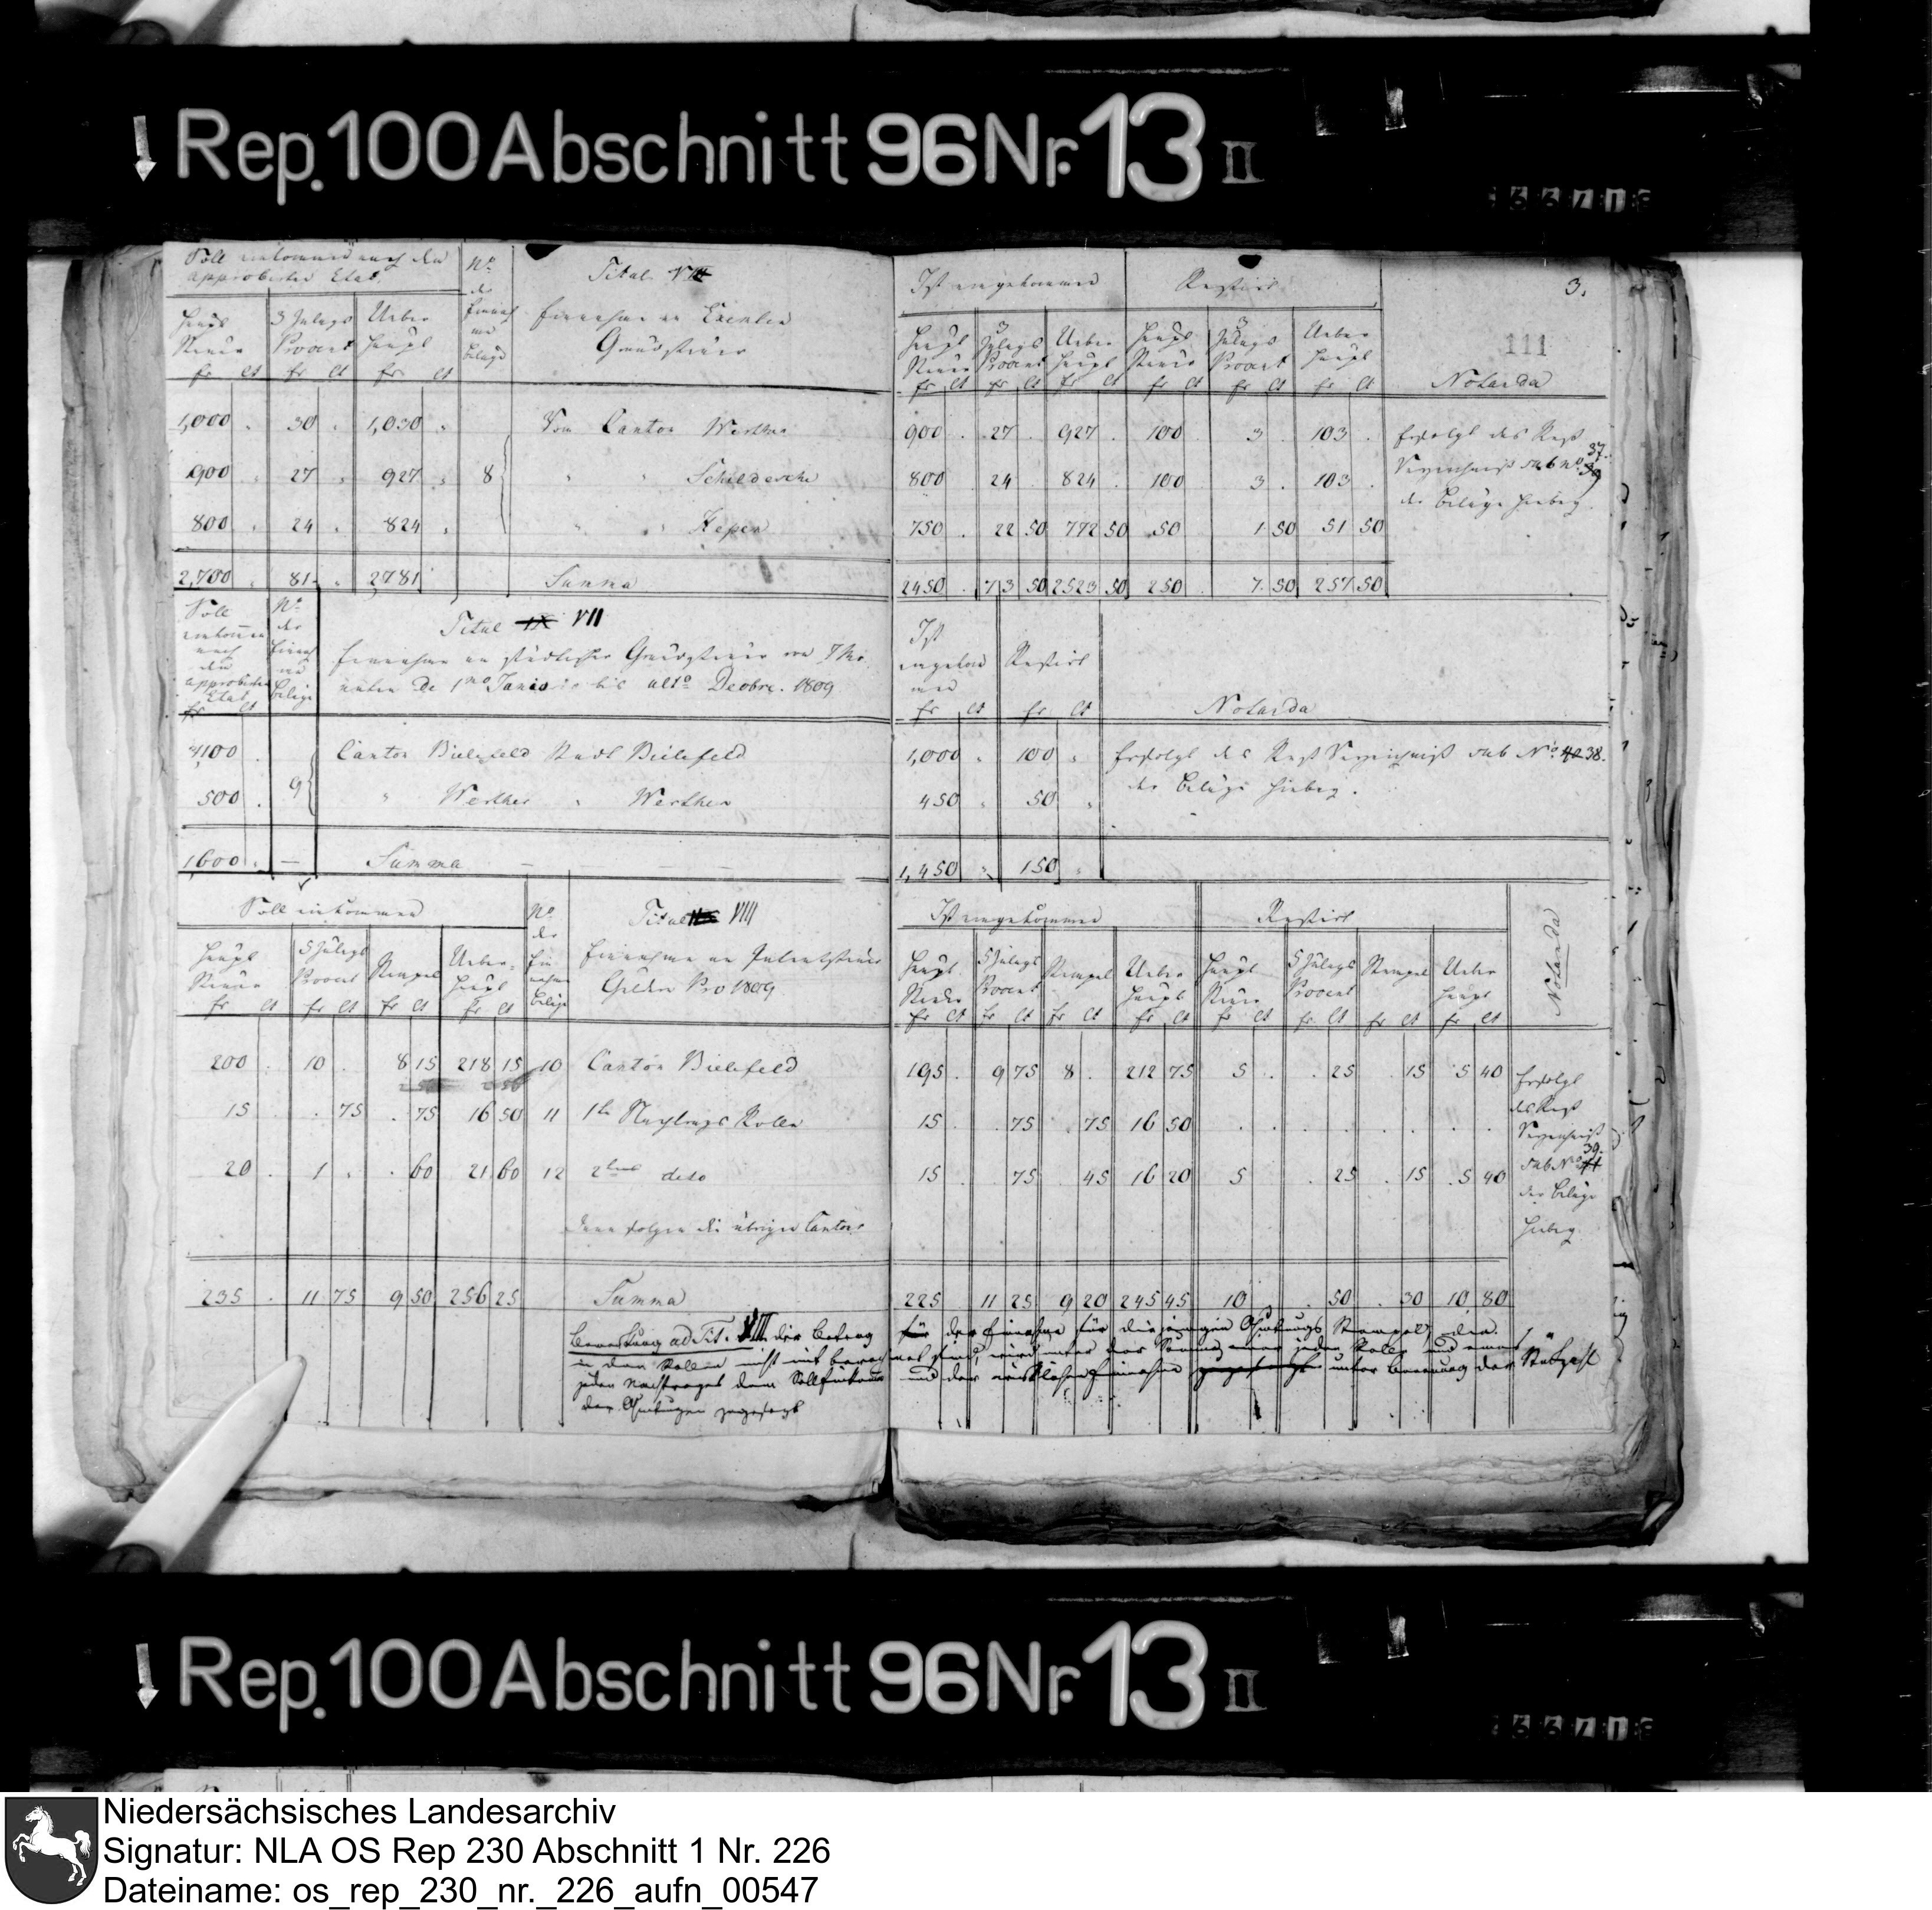 Rep. 100 Abschnitt 96 Nr. 13 II
Soll einkommen nach dem
approbirten Etat.
No der Einnahme Beläge
Titul VI
Einnahme an Exemten
Grundsteuer
Ist eingekommen
Restirt
3.
111
Haupt Steuer 3 Zulags Procent Ueber haupt
fr ct fr ct fr ct
Haupt Steuer 3 Zulags Procent Ueber haupt Haupt Steuer 3 Zulags Procent Ueber haupt
fr ct fr ct fr ct fr ct fr ct fr ct
Notanda
1,000 . 30 . 1,030 . Vom Canton Werther 900 . 27 . 927 . 100 3 . 103 .
900 . 27 . 927 . 8 " " Schildesche 800 24 824 . 100 3 . 103 .
800 . 24 . 824 . " " Hepen 750 . 22 50 772 50 50 1 50 51 50
Erfolgt das Rest
Verzeichniß sub No. 37.
der Beläge hiebey.
2,700 . 81 . 2781 Summa 2450 . 73 50 2523 50 250 7 50 257 50
Soll einkommen nach dem approbirten Etat
fr ct
No der Einnahme Beläge
Titul IX VII
Einnahme an städtischer Grundsteuer
de 1mo Januar bis ulto Decbr. 1809
Ist eingekommen
fr ct
Restirt
fr ct
Notanda
1,100 . Canton Bielefeld Stadt Bielefeld 1,000 . 100 .
500 . 9 " Werther " Werther 450 . 50 .
Erfolgt das Rest Verzeichniß sub No. 40 38.
der Beläge hiebey.
1,600 . — Summa — — — 1,450 . 150 .
Soll einkommen
No der Einnahme Beläge
Titul VIII
Einnahme an Patentsteuer
Gelder Pro 1809
Ist eingekommen
Restirt
Notanda
Haupt Steuer 5 Zulags Procent Stempel Ueber haupt
fr ct fr ct fr ct fr ct
Haupt Steuer 5 Zulags Procent Stempel Ueber haupt Haupt Steuer 5 Zulags Procent Stempel Ueber haupt
fr ct fr ct fr ct fr ct fr ct fr ct fr ct fr ct
200 . 10 . 8 15 218 15 10 Canton Bielefeld 195 . 9 75 8 . 212 75 5 . . 25 . 15 5 40
15 . 75 . 75 16 50 11 1te Nachtrags Rolle 15 . 75 . 75 16 50 . . . . . . . .
20 . 1 . . 60 21 60 12 2te deto 15 . 75 . 45 16 20 5 . 25 . 15 5 40
Erfolgt
das Rest
Verzeichniß
sub No 39.
der Beläge
hiebey
Dann folgen die übrigen Cantons
235 . 11 75 9 50 256 25 Summa 225 11 25 9 20 245 45 10 . 50 . 30 10 80
Bemerkung ad Tit. VIII. der Betrag der Einnahme für diejenigen Quitungs Stempel, die
in den Rollen nicht mit berechnet sind, wird unter der Summe jeder Rolle und eines
jeden Nachtrages dem Solleinkommen und der wirklichen Einnahme unter Benennung der Stückzahl
der Quitungen zugesetzt
Rep. 100 Abschnitt 96 Nr. 13 II
Niedersächsisches Landesarchiv
Signatur: NLA OS Rep 230 Abschnitt 1 Nr. 226
Dateiname: os_rep_230_nr._226_aufn_00547